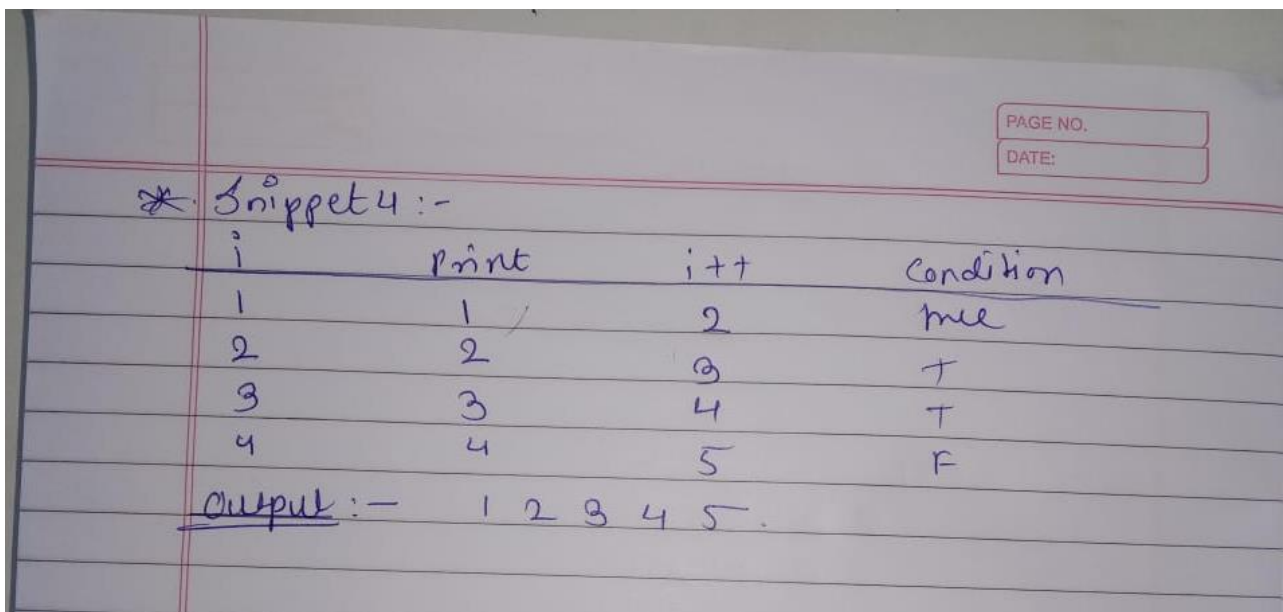 PAGE NO.
DATE:
* Snippet 4 :-
i Print i++ Condition
1 1 2 true
2 2 3 T
3 3 4 T
4 4 5 F
Output :- 1 2 3 4 5.